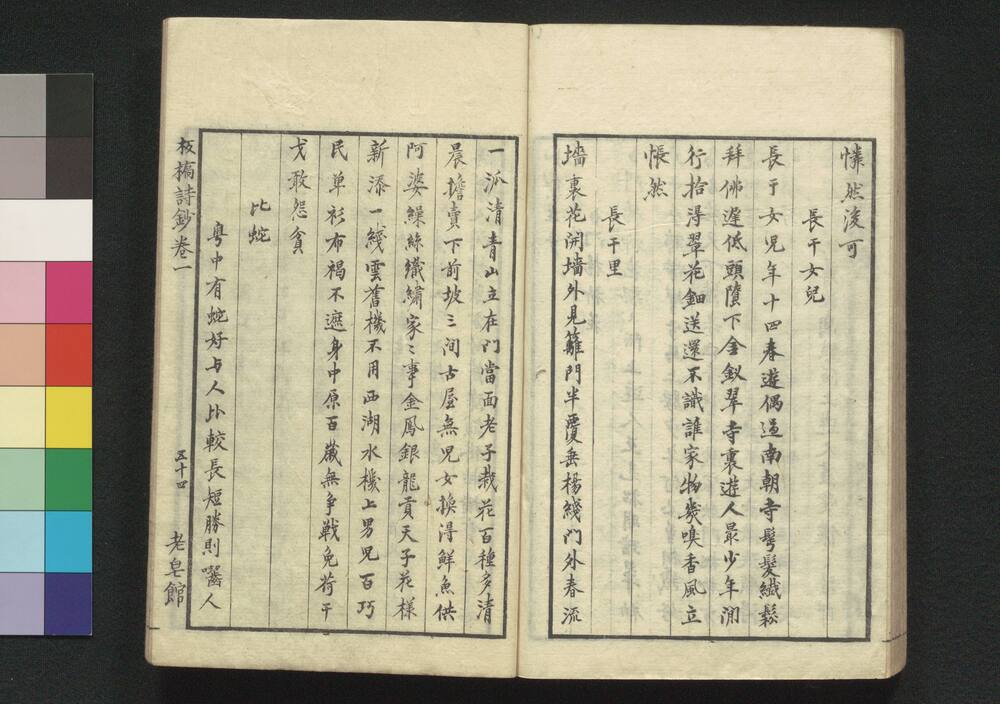 憐然後可
長干女兒
長干女兒年十四春遊偶過南朝寺鬂髮纎鬆
拜佛遲低頭墮下金釵翠寺裏遊人最少年閒
行拾得翠花鈿送還不識誰家物幾嗅香風立
悵然
長干里
墻裏花開墻外見籬門半覆垂楊綫門外春流
一派清青山立在門當面老子栽花百種多清
晨擔賣下前坡三间古屋無児女換淂鮮魚供
阿婆繰絲織繡家〻事金鳳銀龍貢天子花樣
新添一綫雲舊機不用西湖水機上男児百巧
民单衫布褐不遮身中原百歳無爭戰免荷干
戈敢怨貧
比蛇
粤中有蛇好与人比較長短勝則囓人
板橋詩鈔卷一
五十四
老皂館